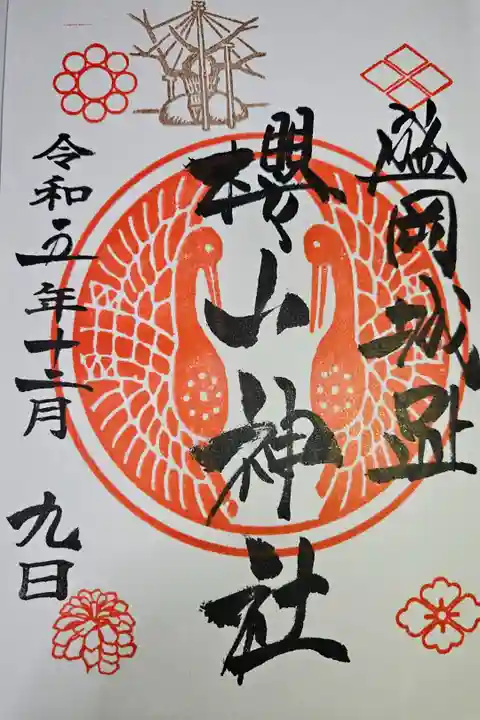 盛岡城址
櫻山神社
令和五年十二月
九日